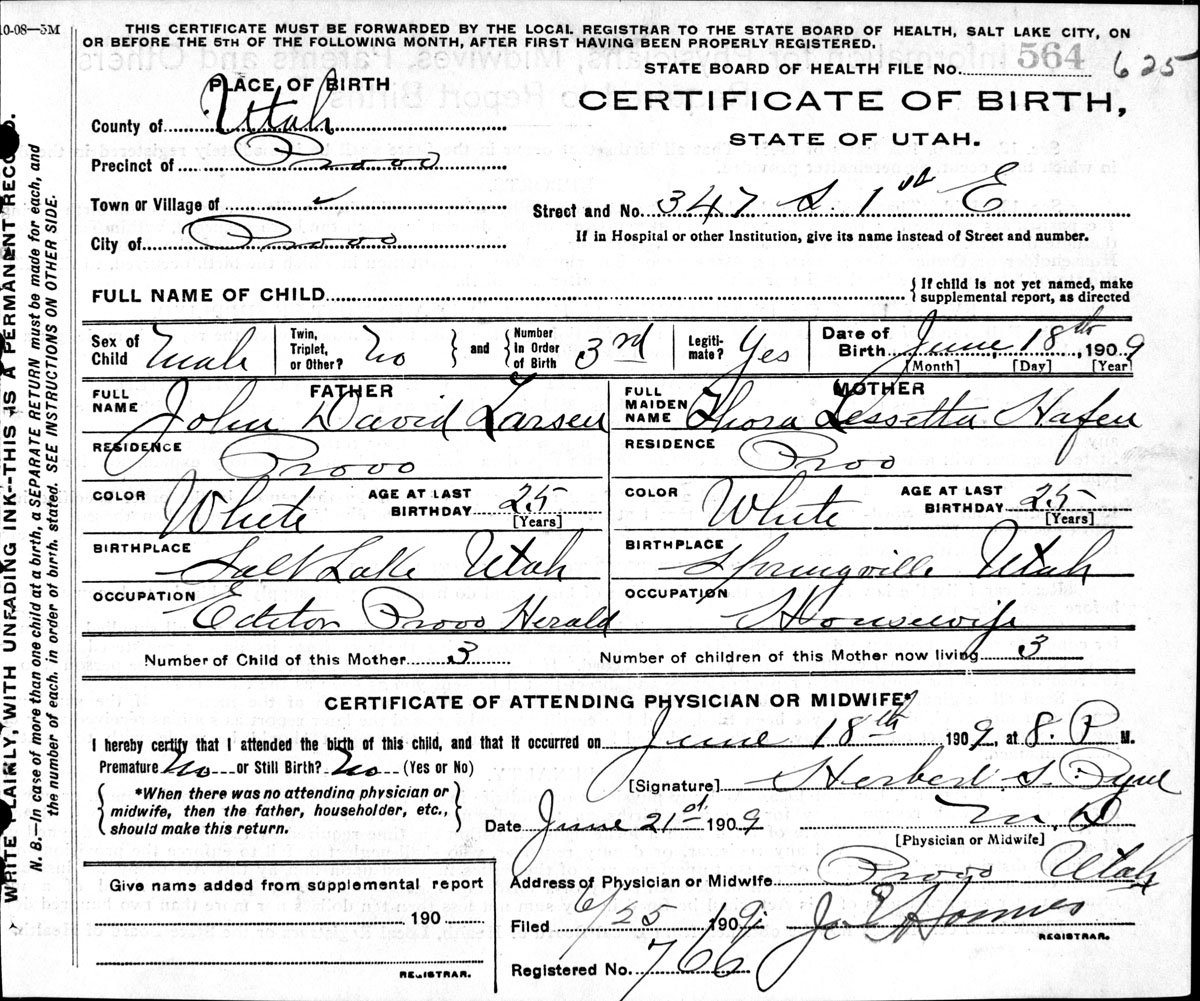 10-08—5M
THIS CERTIFICATE MUST BE FORWARDED BY THE LOCAL REGISTRAR TO THE STATE BOARD OF HEALTH, SALT LAKE CITY, ON
OR BEFORE THE 5TH OF THE FOLLOWING MONTH, AFTER FIRST HAVING BEEN PROPERLY REGISTERED.
STATE BOARD OF HEALTH FILE NO. 564 625
PLACE OF BIRTH
CERTIFICATE OF BIRTH,
STATE OF UTAH.
County of Utah
Precinct of Provo
Town or Village of
Street and No. 347 S. 1st E
City of Provo
If in Hospital or other Institution, give its name instead of Street and number.
FULL NAME OF CHILD
If child is not yet named, make
supplemental report, as directed
Sex of Child Male
Twin, Triplet, or Other? No
and Number In Order of Birth 3rd
Legiti-mate? Yes
Date of Birth June 18th, 1909
[Month] [Day] [Year]
FATHER
FULL NAME John David Larsen
MOTHER
FULL MAIDEN NAME Thora Lessetta Hafen
RESIDENCE Provo
RESIDENCE Proo
COLOR White AGE AT LAST BIRTHDAY 25 [Years]
COLOR White AGE AT LAST BIRTHDAY 25 [Years]
BIRTHPLACE Salt Lake Utah
BIRTHPLACE Springville Utah
OCCUPATION Editor Provo Herald
OCCUPATION Housewife
Number of Child of this Mother 3
Number of children of this Mother now living 3
CERTIFICATE OF ATTENDING PHYSICIAN OR MIDWIFE*
I hereby certify that I attended the birth of this child, and that it occurred on June 18th 1909, at 8. P M.
Premature No or Still Birth? No (Yes or No)
[Signature] Herbert S. Pyne
*When there was no attending physician or
midwife, then the father, householder, etc.,
should make this return.
Date June 21st 1909 M. D
[Physician or Midwife]
Give name added from supplemental report
190
REGISTRAR.
Address of Physician or Midwife Provo Utah
Filed 6/25 1909
REGISTRAR.
Registered No. 766
WRITE LAIRLY, WITH UNFADING INK--THIS IS A PERMANENT RECORD.
N. B.—In case of more than one child at a birth, a SEPARATE RETURN must be made for each, and
the number of each, in order of birth, stated. SEE INSTRUCTIONS ON OTHER SIDE.